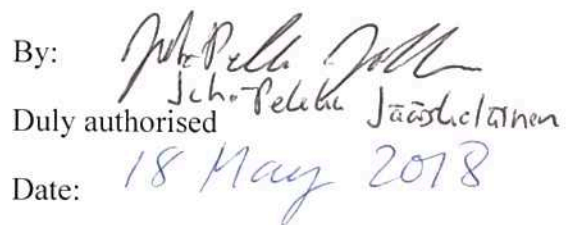 By:
Juho-Pekka Jääskeläinen
Duly authorised
Date: 18 May 2018